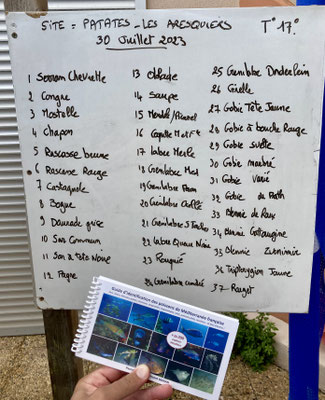 SITE = PATATES - LES ARESQUIERS
T° 17°
30 Juillet 2023
1 Serran Chevrette
2 Congre
3 Mostelle
4 Chapon
5 Rascasse brune
6 Rascasse Rouge
7 Castagnole
8 Bogue
9 Daurade grise
10 Sar Commun
11 Sar à Tête Noire
12 Pagre
13 oblade
14 Saupe
15
16 Capelan
17 Labre Merle
18 Crenilabre Med
19 Crenilabre Paon
20 Crenilabre
21 Crenilabre 5 Taches
22 Labre Queue Noire
23 Rouquié
24 Crenilabre cendré
25 Crenilabre Doderlein
26 Girelle
27 Gobie Tête Jaune
28 Gobie à bouche Rouge
29 Gobie svelte
30 Gobie marbré
31 Gobie Varié
32 Gobie de Roth
33 Blennie de Roux
34 Blennie Gattorugine
35 Blennie Zvonimir
36 Tripterygion Jaune
37 Rouget
Guide d'identification des poissons de Méditerranée française